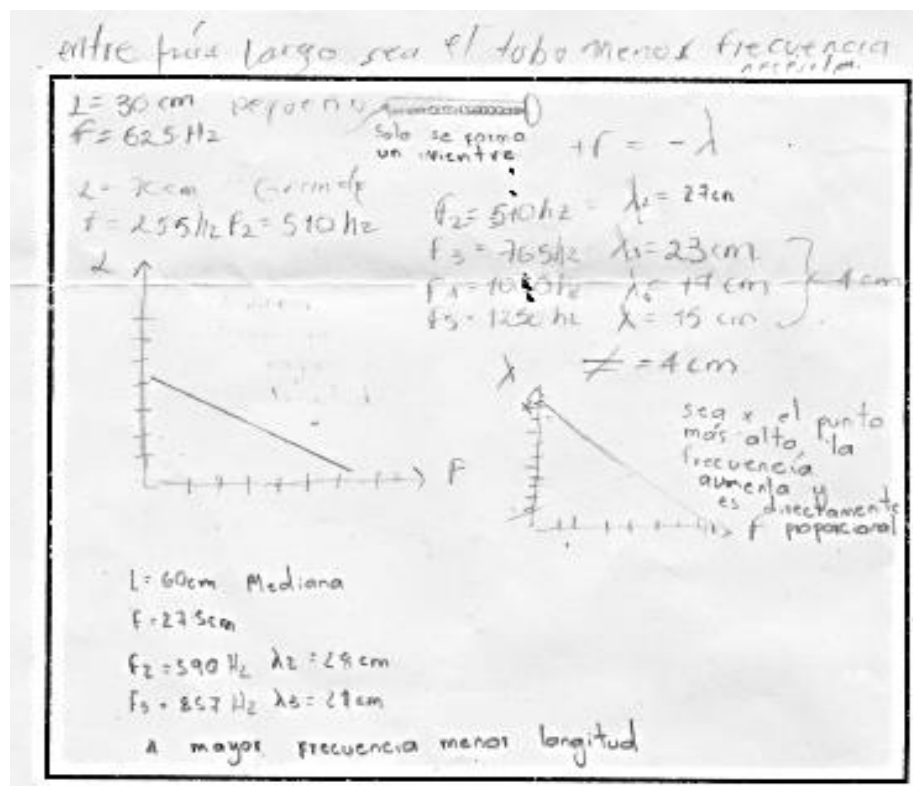 entre más largo sea el tobo menos frecuencia
necesita.
L = 30 cm pequeño
f = 625 Hz
Solo se forma
un vientre
+f = -λ
L = 70cm Grande
f = 255hz f2 = 510 hz
f2 = 510hz = λ2 = 27cm
f3 = 765hz λ3 = 23 cm
λ = 19 cm
4 cm
f5 = 1250 hz λ = 15 cm
≠ = 4 cm
λ
F
λ
f
sea x el punto
más alto, la
frecuencia
aumenta y
es directamente
proporcional
L = 60cm Mediana
F = 275cm
f2 = 590 Hz λ2 = 28 cm
f3 = 857 Hz λ3 = cm
A mayor frecuencia menor longitud